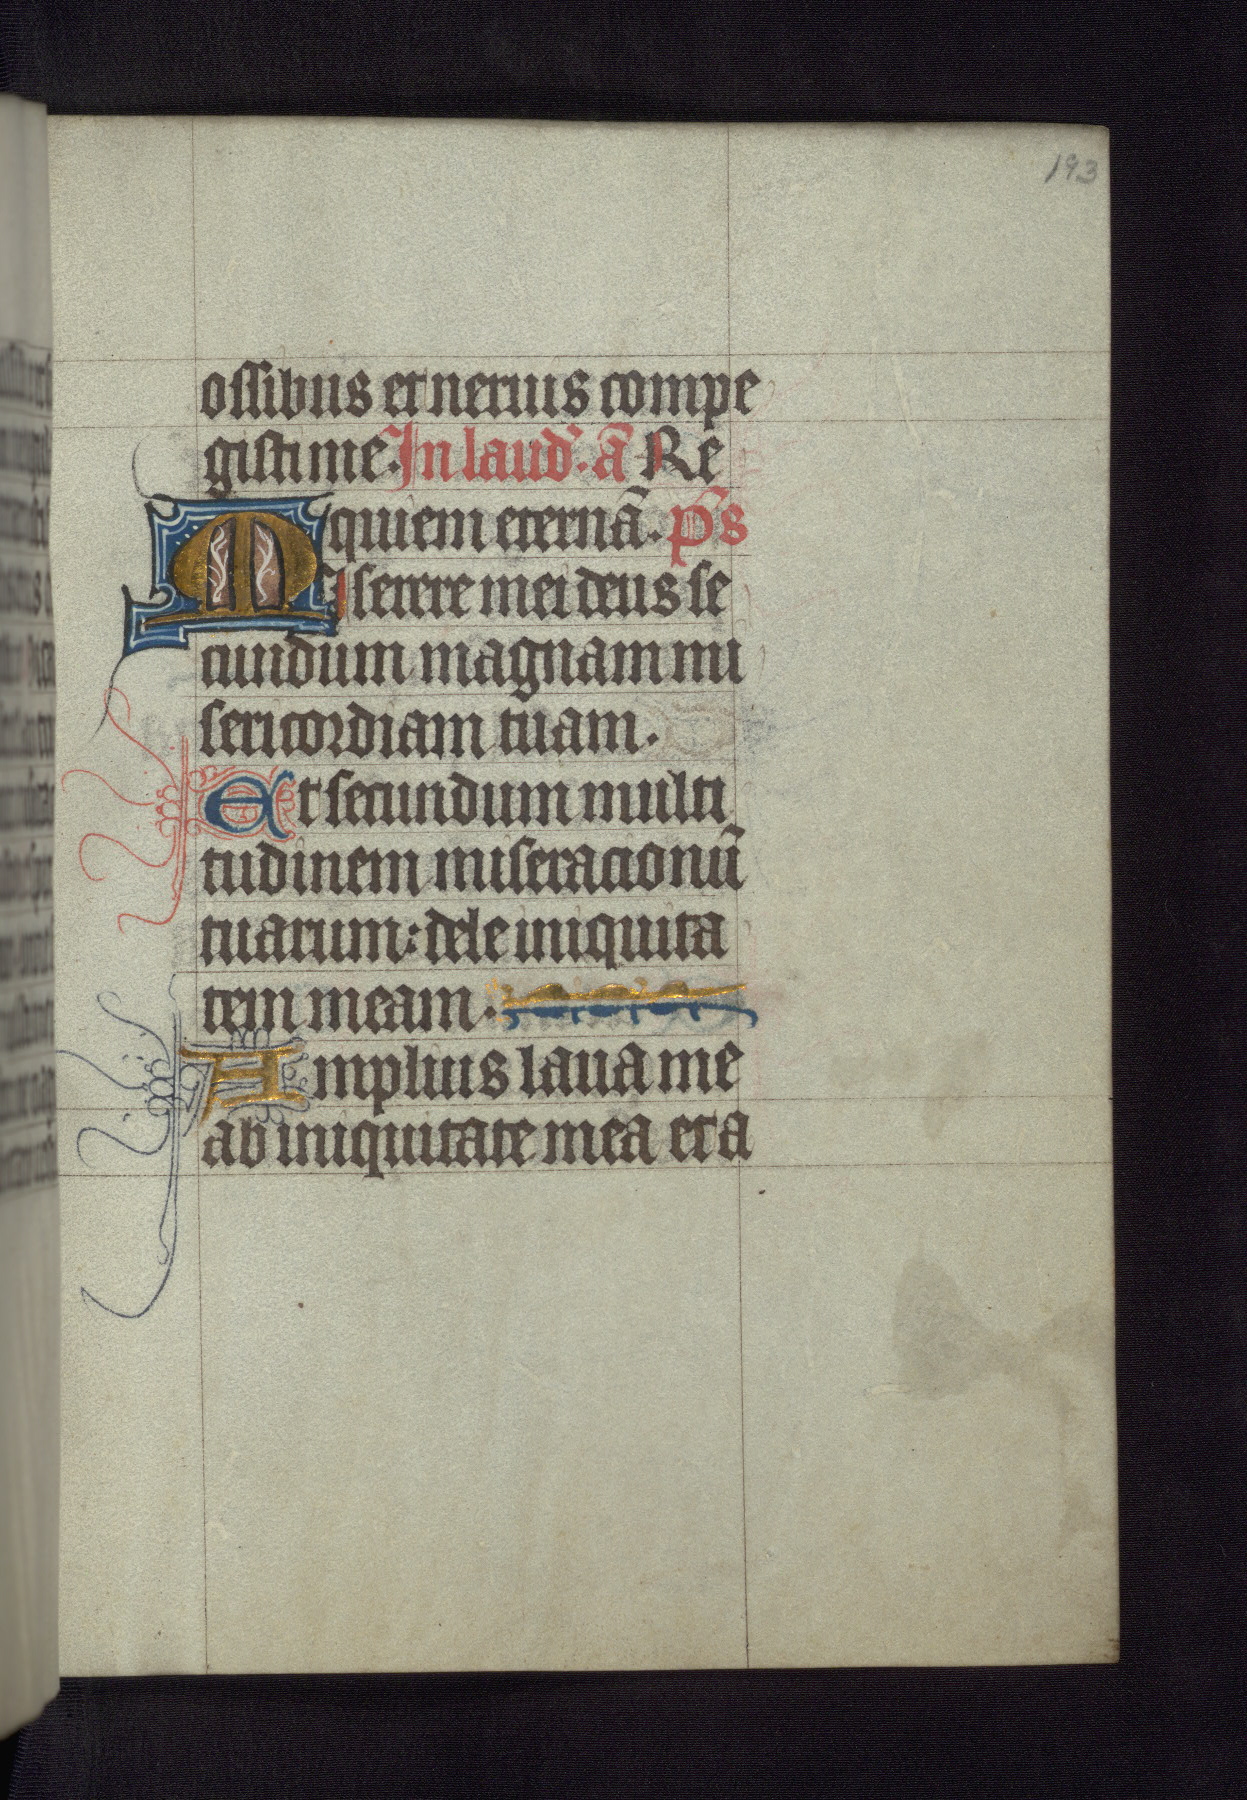 193
ossibus et neruis compe
gisti me. In laud. añ Re
quiem eternā. ps̄
Miserere mei deus se
cundum magnam mi
sericordiam tuam.
Et secundum multi
tudinem miseracionū
tuarum: dele iniquita
tem meam.
Amplius laua me
ab iniquitate mea et a